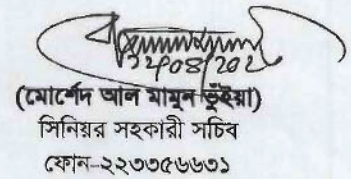 22/08/202
(মোর্শেদ আল মামুন ভূঁইয়া)
সিনিয়র সহকারী সচিব
ফোন-২২৩৩৫৬৬৩১